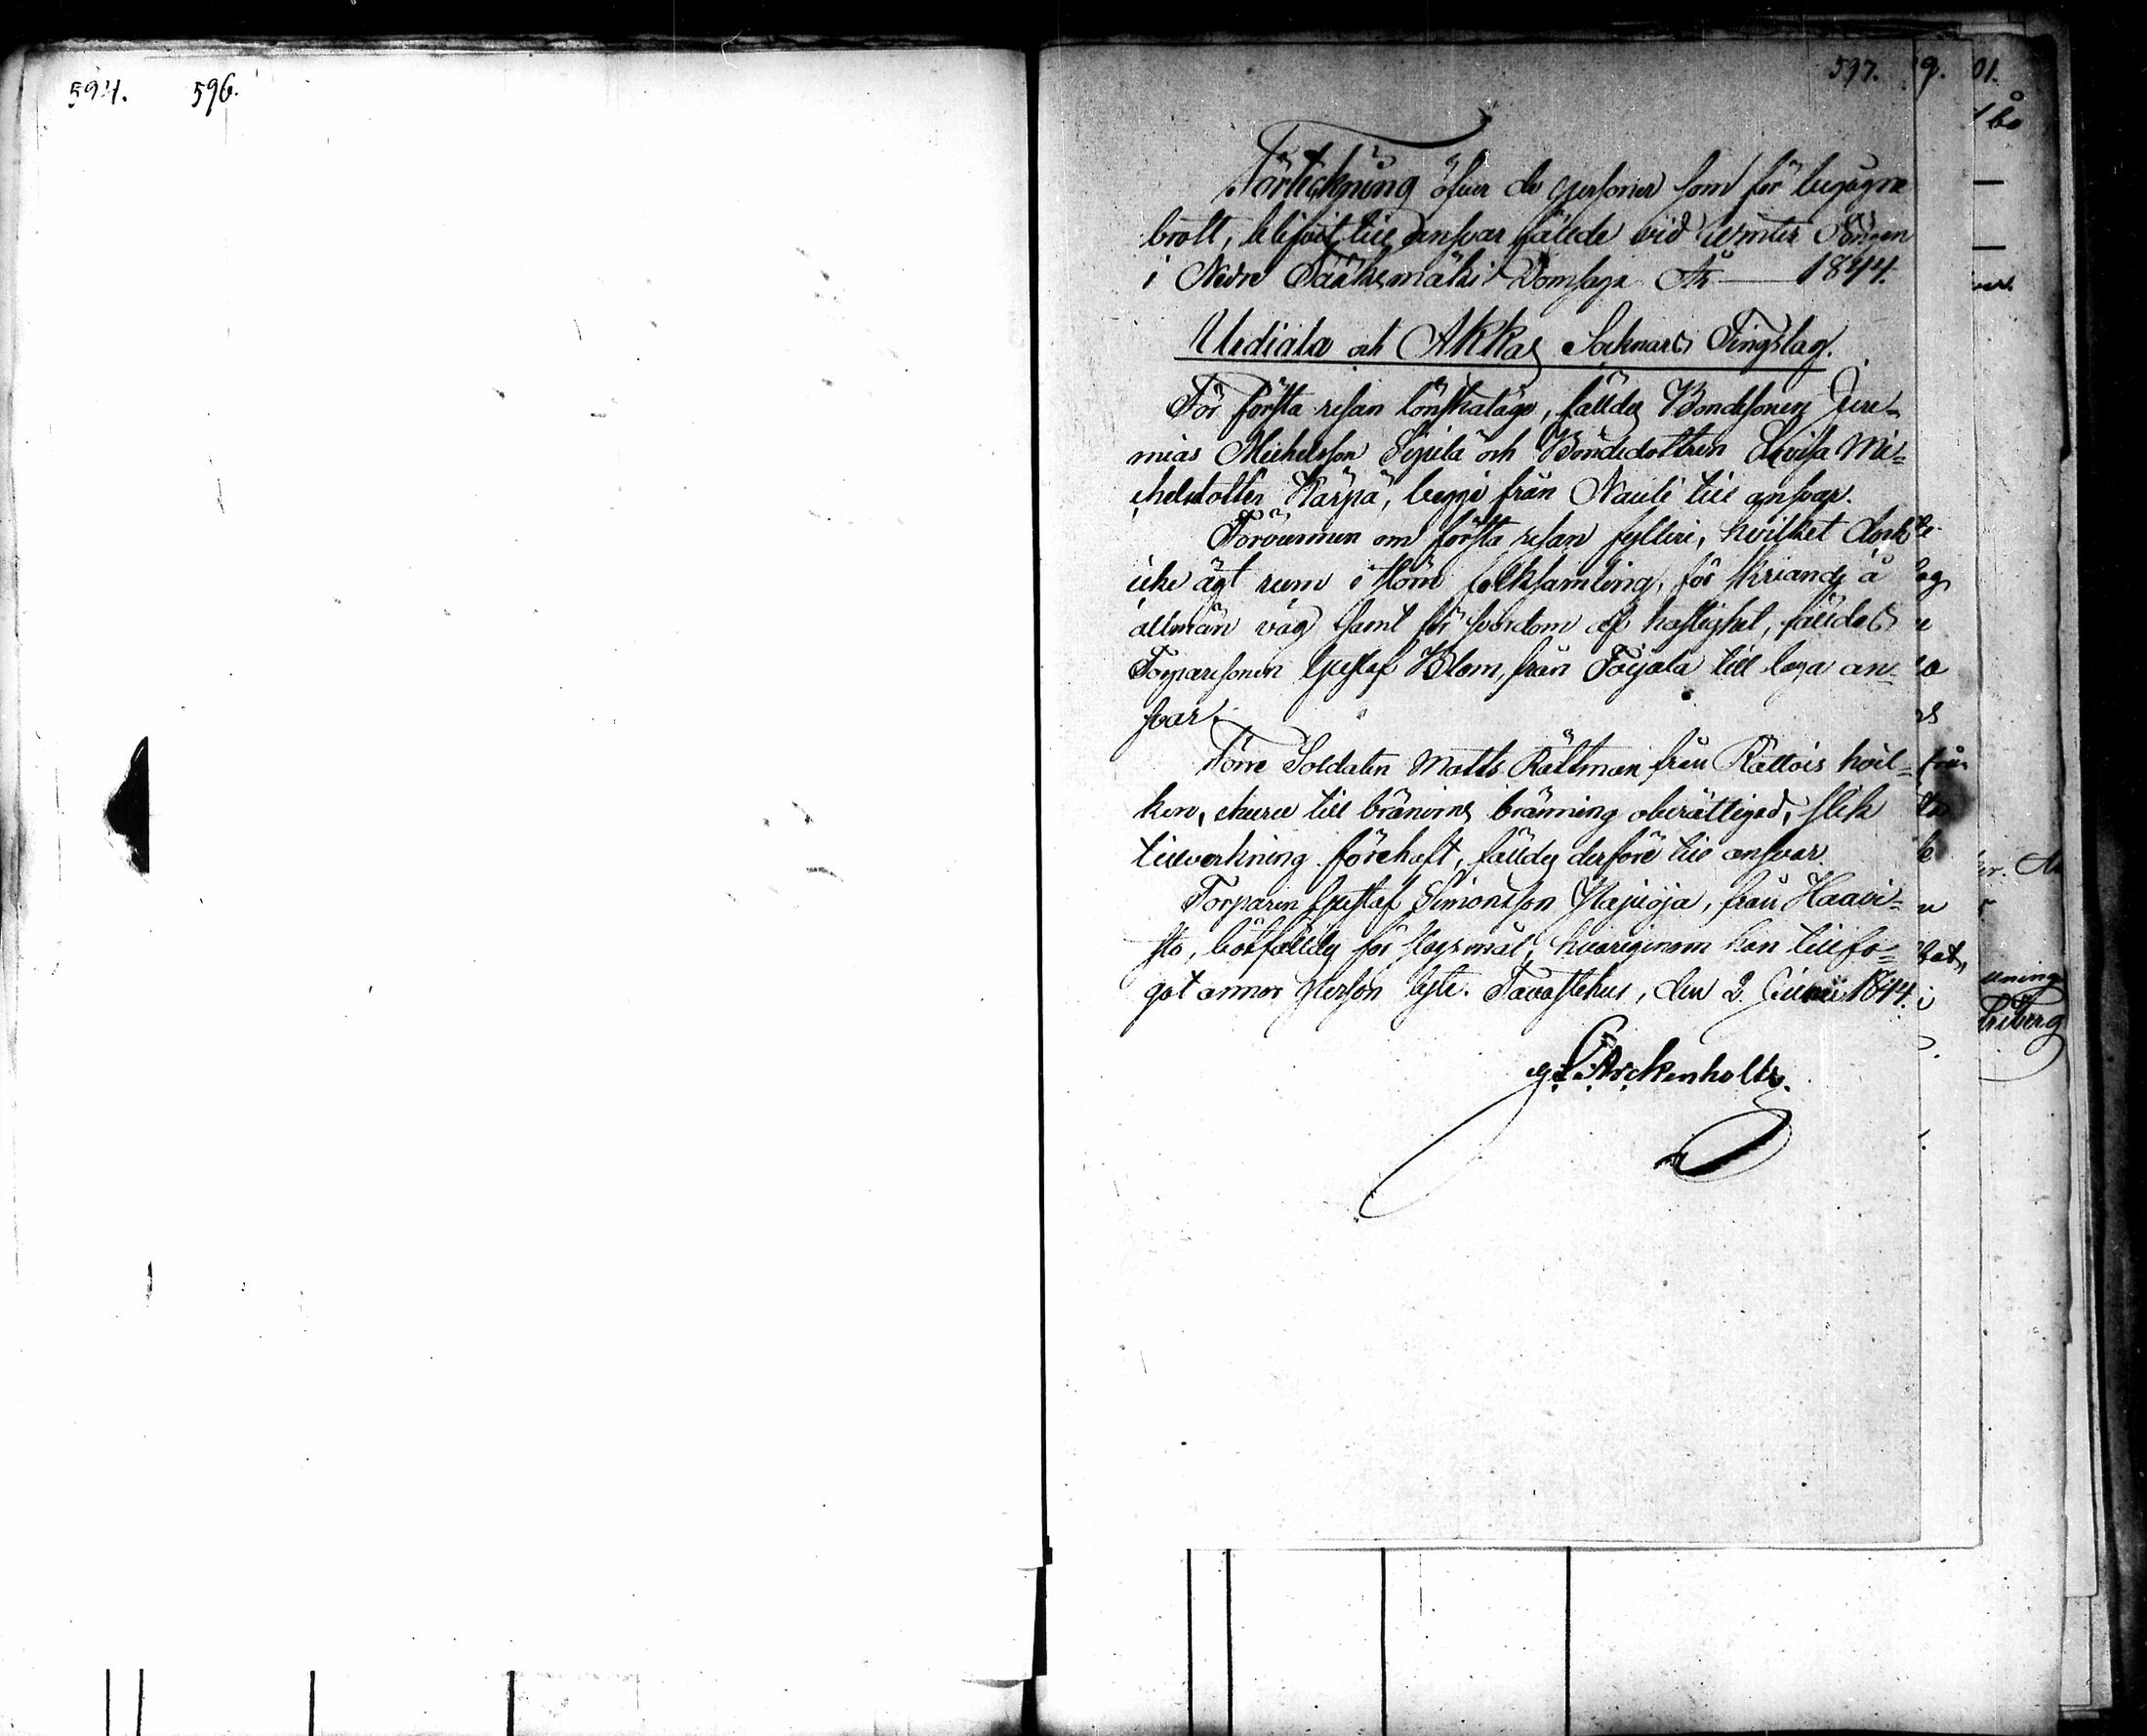 594. 596.
597.
Förteckning öfver de personer som för begågne
brott, blifvit till ansvar fällde vid Winter Tingen
i Nedre Sääksmäki Domsaga År — 1844.
Urdiala och Akkas Socknars Tingslag.
För första resan lönskaläge, fälldes Bondesonen Jere-
mias Michelsson Sipilä och Bondedottren Lovisa Mi-
chelsdotter Kärpä, begge från Nauli till ansvar.
Förvunnen om första resan fylleri, hvilket dock
icke ägt rum i större folksamling, för skriande å
allmän väg samt för svordom af hastighet, fälldes
Torparesonen Gustaf Blom, från Toijala till laga an-
svar.
Förre Soldaten Matts Rättman från Rättois hvil-
ken, ehuru till bränvins bränning oberättigad, slik
tillverkning förehaft, fälldes derföre till ansvar.
Torparen Gustaf Simonsson Ylajuoja, från Haavi-
sto, botfälldes för slagsmål, hvarigenom han tillfo-
gat annor person lyte. Tavastehus, den 2 Junii 1844.
Arckenholtz.
9.
01.